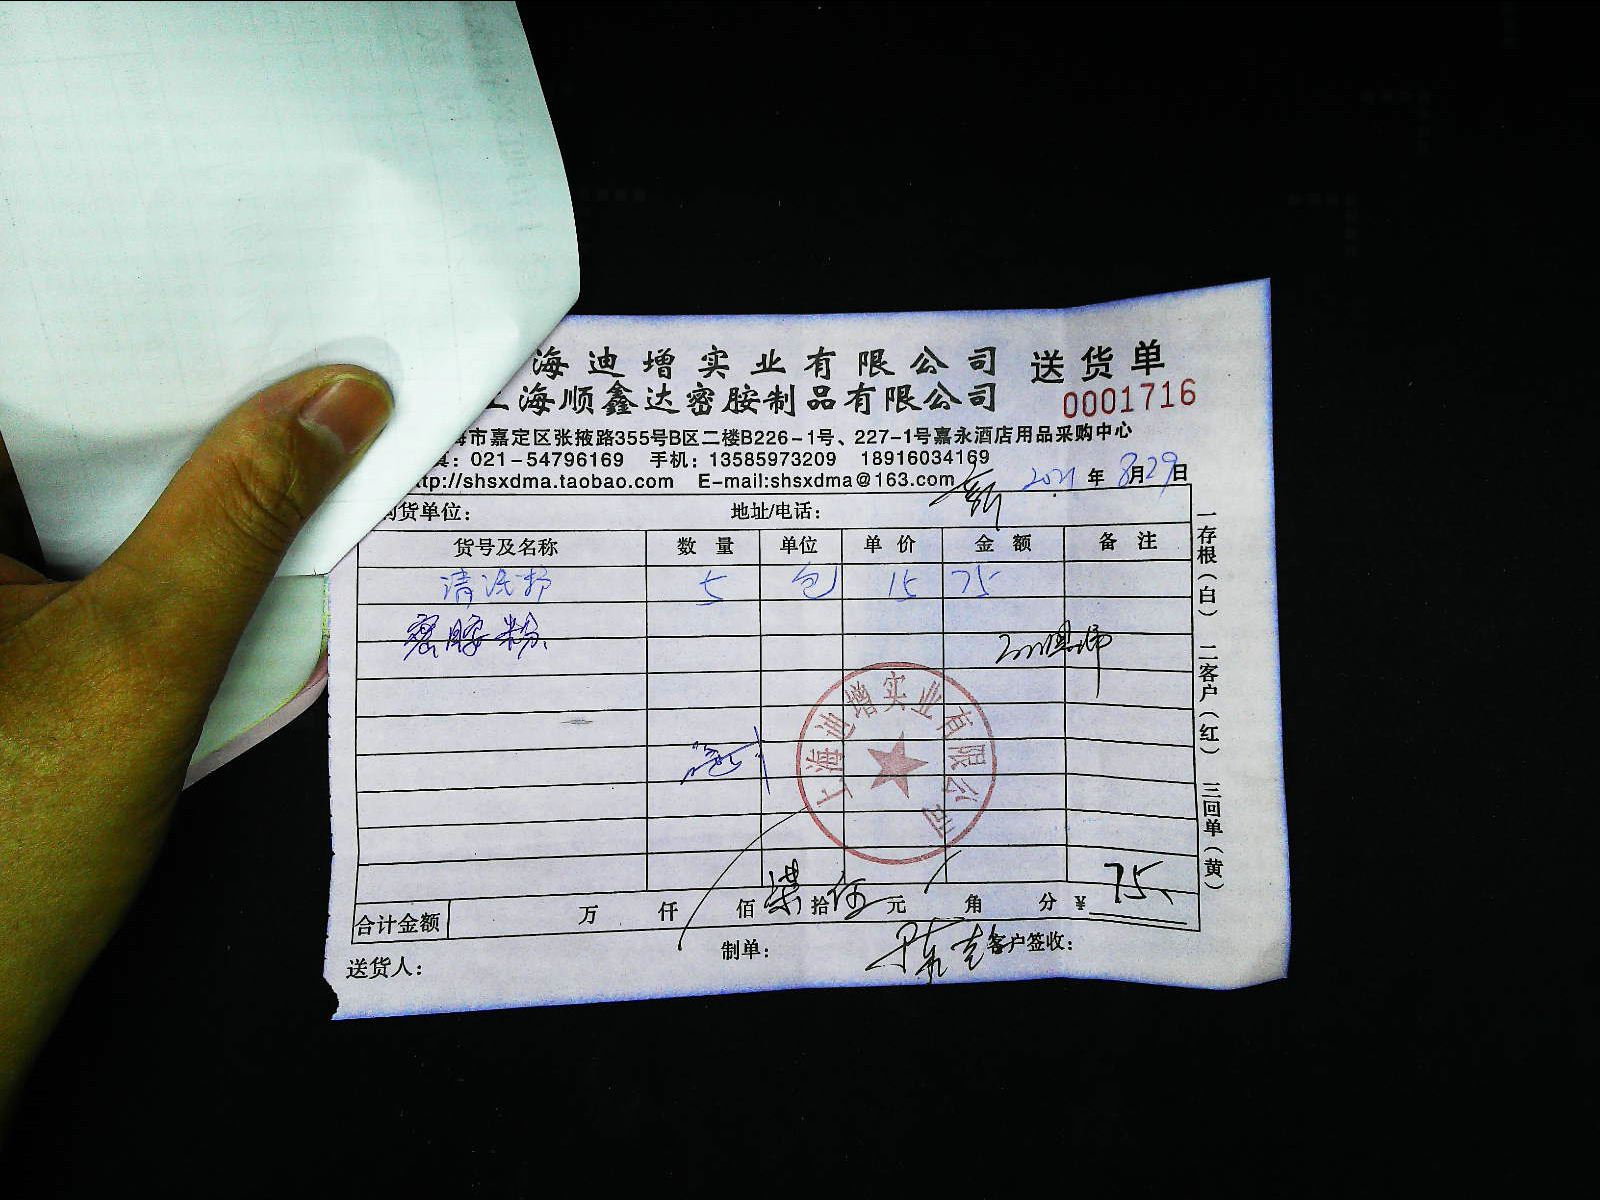 海迪增实业有限公司 送货单
上海顺鑫达密胺制品有限公司 0001716
海市嘉定区张掖路355号B区二楼B226-1号、227-1号嘉永酒店用品采购中心
真：021-54796169 手机：13585973209 18916034169
ttp://shsxdma.taobao.com E-mail:shsxdma@163.com
2021年8月29日
购货单位： 地址/电话：
货号及名称 数量 单位 单价 金额 备注
清洗粉 5 包 15 75
密胺粉
上海迪增实业有限公司
合计金额 万 仟 佰 柒拾伍元 角 分 ¥75
送货人： 制单： 客户签收：
一存根(白) 二客户(红) 三回单(黄)